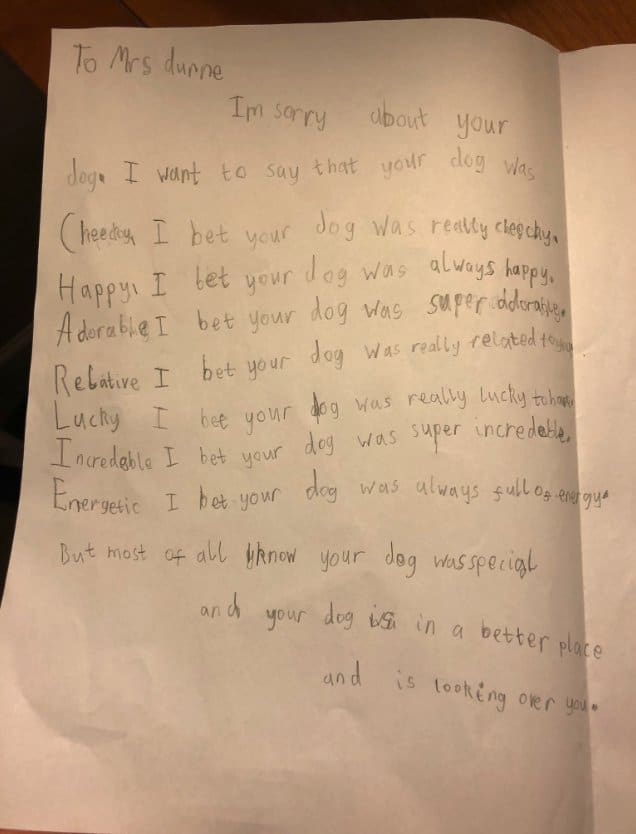 To Mrs dunne
Im sorry about your
dog. I want to say that your dog was
Cheecky I bet your dog was really cheechy.
Happy. I bet your dog was always happy.
Adorable I bet your dog was super adorable.
Relative I bet your dog was really related to you
Lucky I bet your dog was really lucky to have
Incredeble I bet your dog was super incredeble.
Energetic I bet your dog was always full of energy.
But most of all I know your dog was special
and your dog is in a better place
and is looking over you.